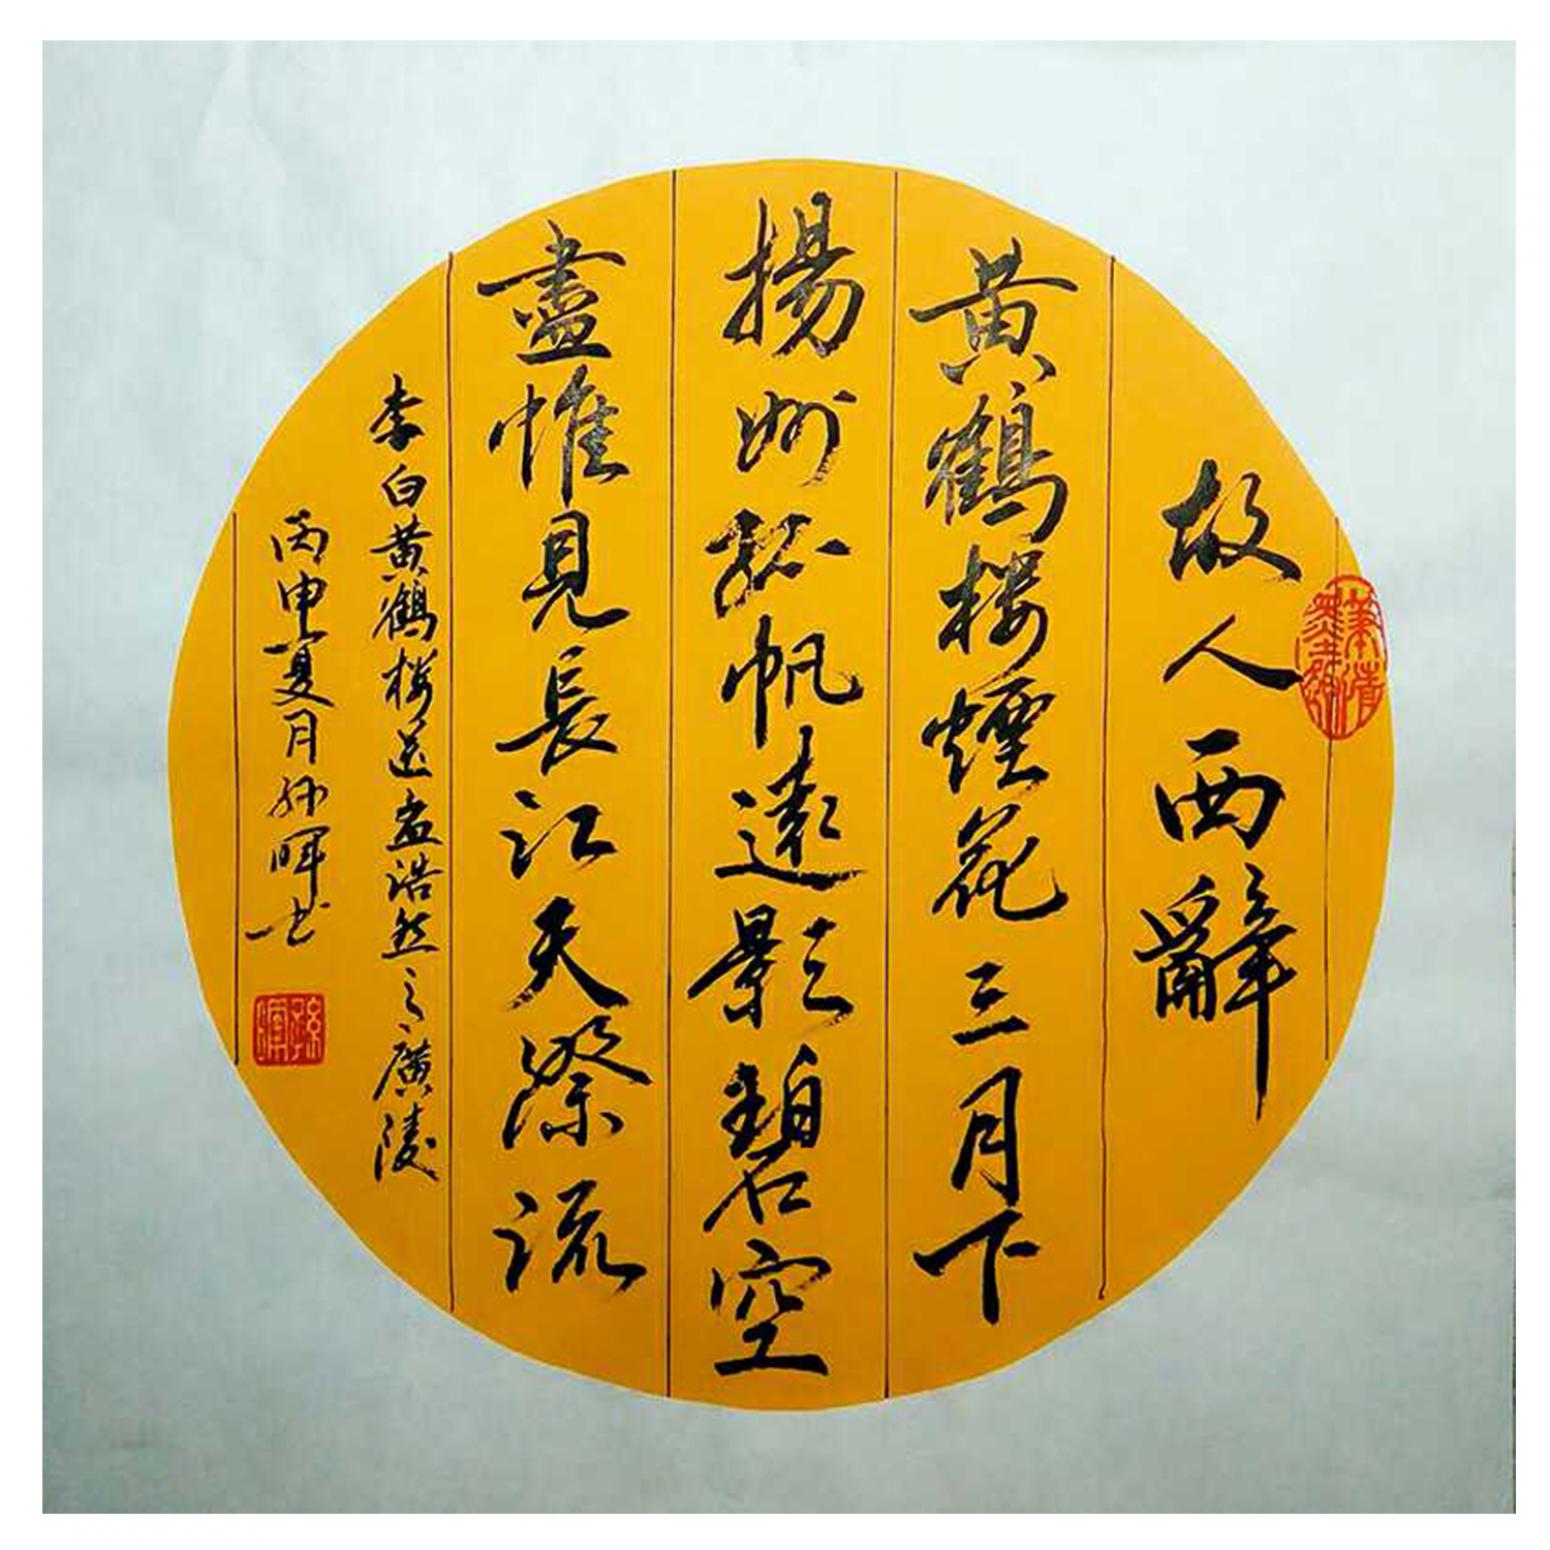 故人西辭
黃鶴樓煙花三月下
揚州孤帆遠影碧空
盡惟見長江天際流
李白黃鶴樓送孟浩然之廣陵
丙申夏月孫暉書
孫暉